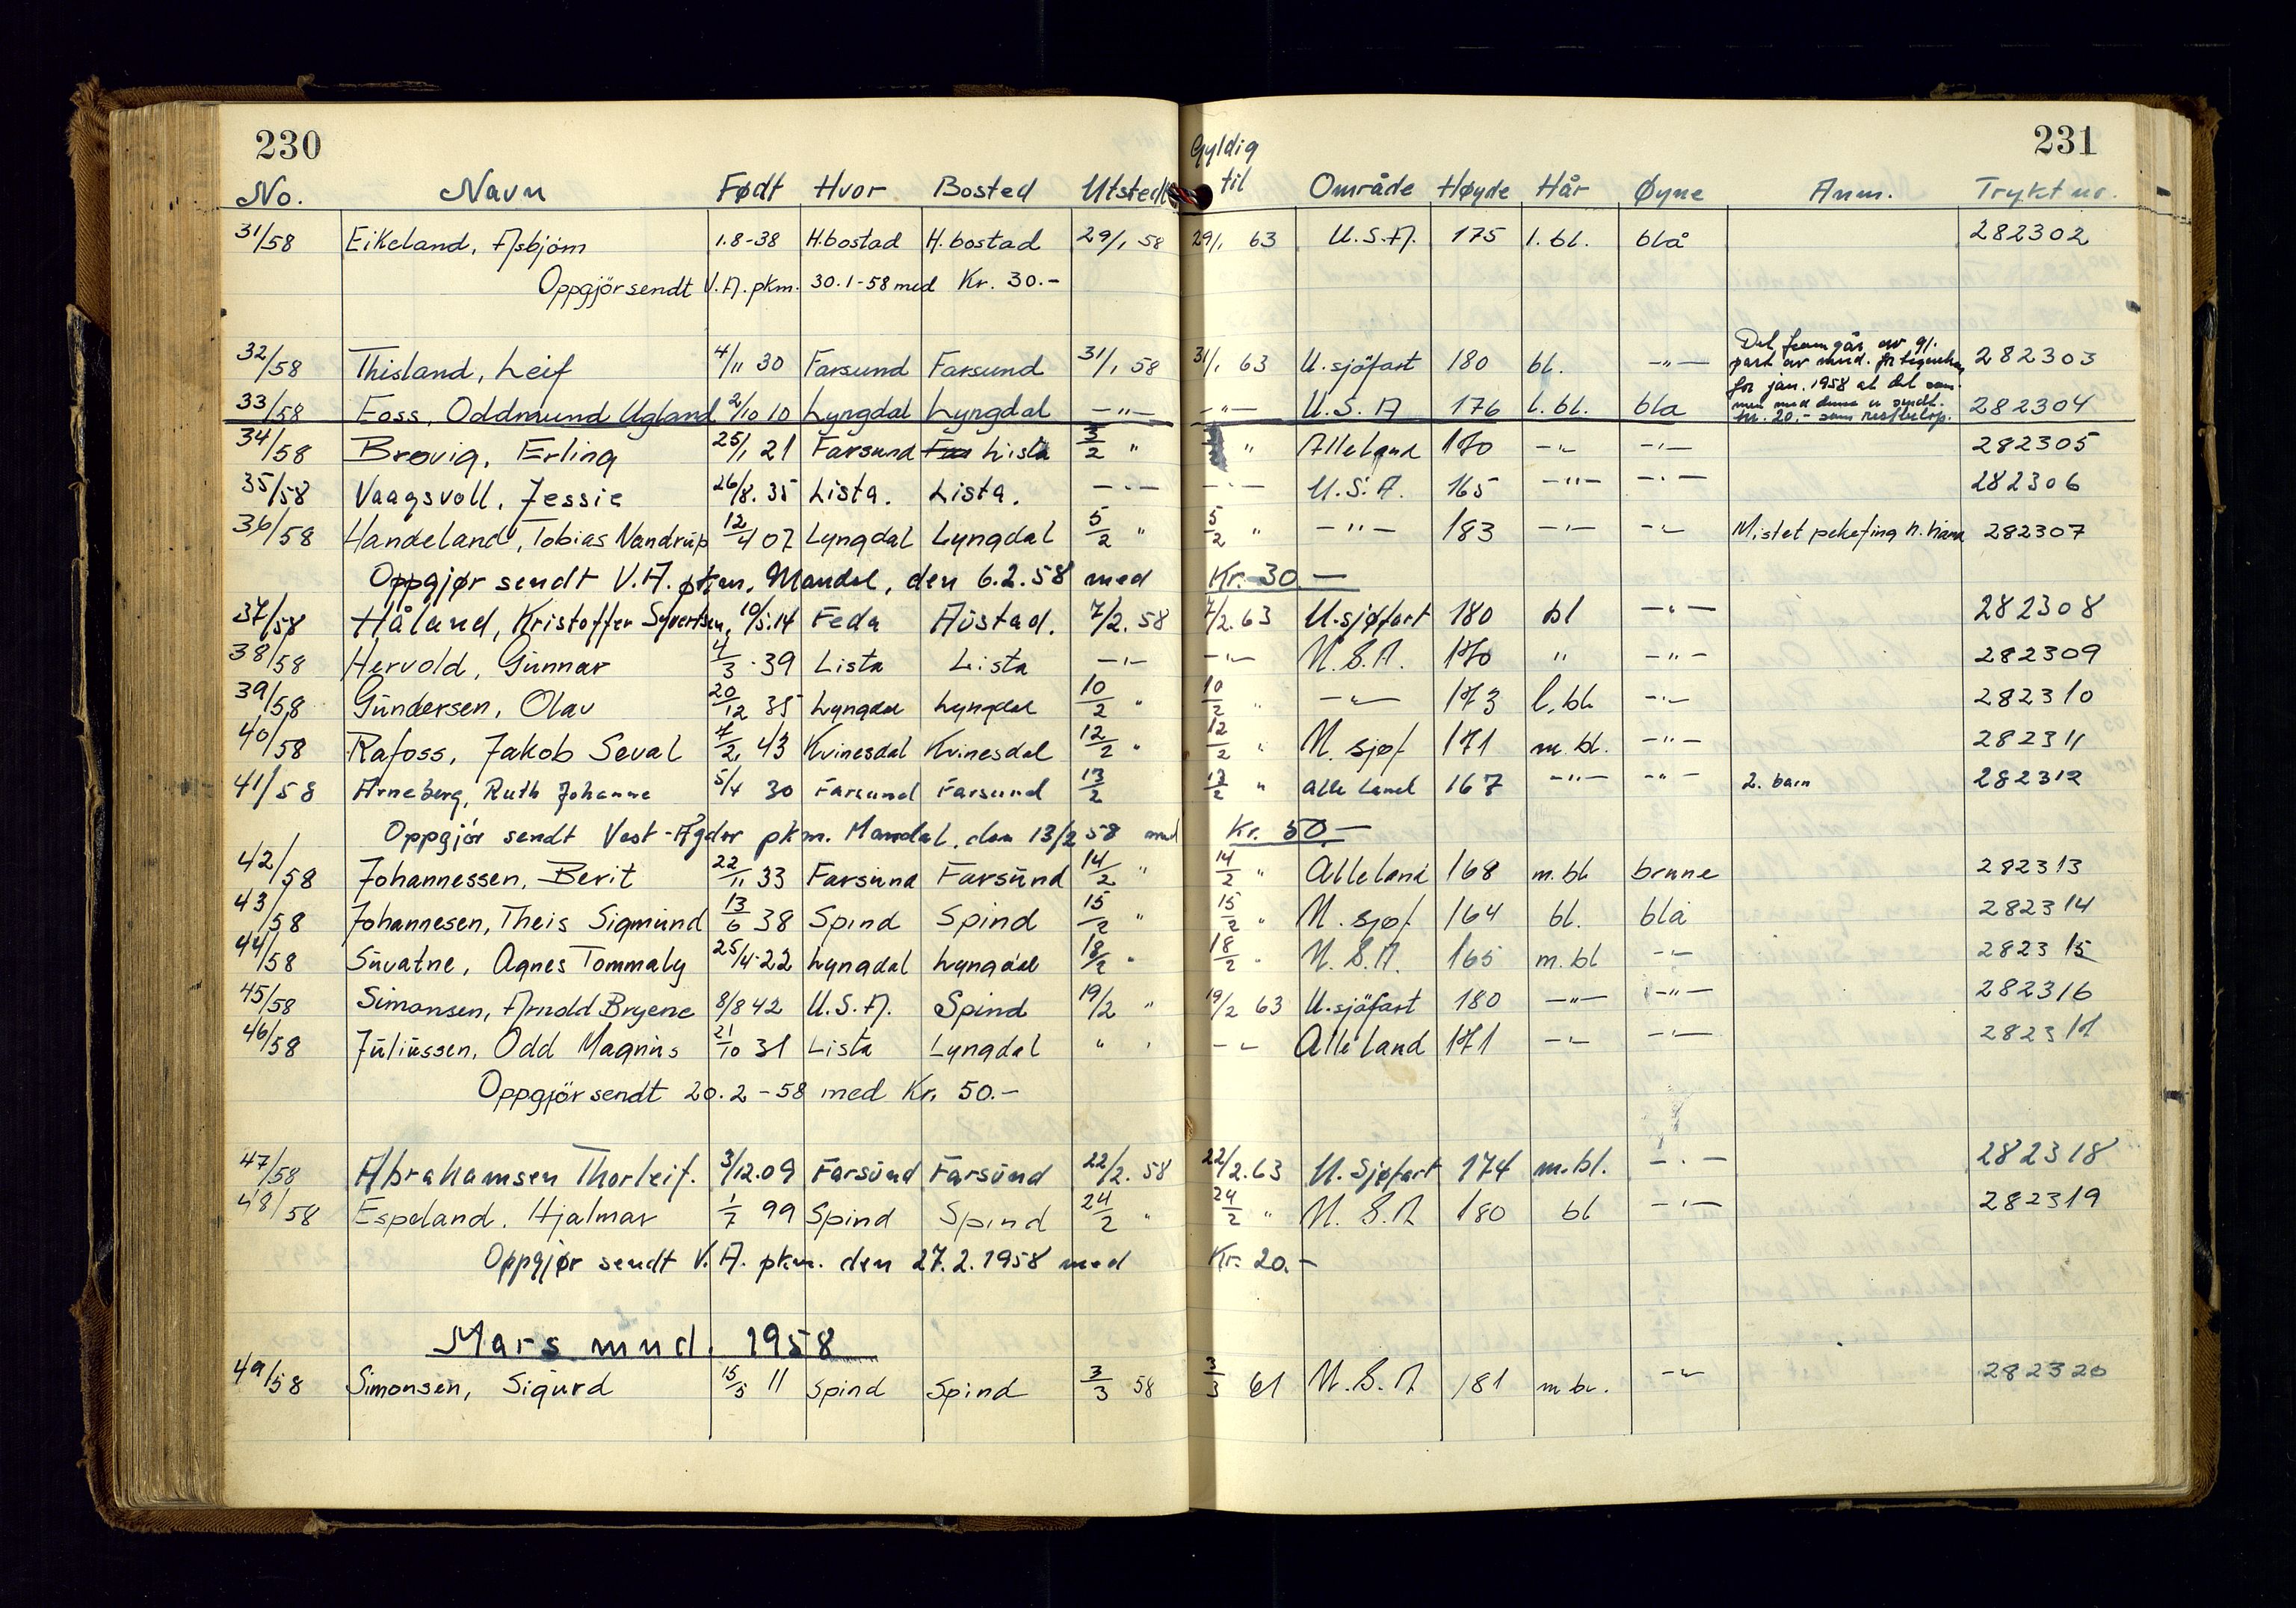 230
231
No. Navn Født Hvor Bosted Utstedt Gyldig til Område Høyde Hår Øyne Anm. Trykt nr.
31/58 Eikeland, Asbjörn 1.8-38 H.bostad H.bostad 29/1 58 29/1 63 U.S.A. 175 l. bl. blå 282302
Oppgjör sendt V.A. pkm. 30.1-58 med Kr. 30.-
32/58 Thisland, Leif 4/11 30 Farsund Farsund 31/1 58 31/1 63 U.sjöfart 180 bl. -"- 282303
Det framgår av gj.
part av mnd.
for jan. 1958 at det
men med denne er sendt
kr. 20.- som restbeløp.
33/58 Foss, Oddmund Ugland 2/10 10 Lyngdal Lyngdal -"- -"- U.S.A 176 l. bl. blå 282304
34/58 Brøvig, Erling 25/1 21 Farsund Far Lista 3/2 " " Alle land 170 -"- -"- 282305
35/58 Vaagsvoll, Jessie 26/8. 35 Lista. Lista. -"- -"- U.S.A. 165 -"- -"- 282306
36/58 Handeland, Tobias Nandrup 12/4 07 Lyngdal Lyngdal 5/2 " 5/2 " -"- 183 -"- -"- Mistet pekefing h. hånd 282307
Oppgjør sendt V.A. pkm, Mandal, den 6.2.58 med Kr. 30.-
37/58 Håland, Kristoffer Syvertsen, 10/5.14 Feda Austad. 7/2. 58 7/2. 63 U.sjøfart 180 bl -"- 282308
38/58 Hervold, Gunnar 4/3 .39 Lista Lista -"- -"- U.S.A. 170 " -"- 282309
39/58 Gundersen, Olav 20/12 35 Lyngdal Lyngdal 10/2 " 10/2 " -"- 173 l. bl -"- 282310
40/58 Rafoss, Jakob Seval 7/2 43 Kvinesdal Kvinesdal 12/2 " 12/2 " U. sjøf. 171 m. bl. -"- 282311
41/58 Arneberg, Ruth Johanne 5/4 30 Farsund Farsund 13/2 13/2 " alle land 167 -"- -"- 2. barn 282312
Oppgjør sendt Vest-Agder pkm. Mandal, den 13/2 58 med Kr. 50.-
42/58 Johannessen, Berit 22/11 33 Farsund Farsund 14/2 " 14/2 " Alle land 168 m. bl brune 282313
43/58 Johannesen, Theis Sigmund 13/6 38 Spind Spind 15/2 " 15/2 " U. sjøf. 164 bl. blå 282314
44/58 Suvatne, Agnes Tommaly 25/4-22 Lyngdal Lyngdal 18/2 " 18/2 " U.S.A. 165 m. bl -"- 282315
45/58 Simonsen, Arnold Bryene 8/8 42 U.S.A. Spind 19/2 " 19/2 63 U.sjöfart 180 -"- -"- 282316
46/58 Juliussen, Odd Magnus 21/10 31 Lista Lyngdal " " -"- Alle land 171 -"- -"- 282317
Oppgjör sendt 20.2-58 med Kr. 50.-
47/58 Abrahamsen Thorleif. 3/12.09 Farsund Farsund 22/2. 58 22/2. 63 U. Sjøfart 174 m. bl. -"- 282318
48/58 Espeland, Hjalmar 1/7 99 Spind Spind 24/2 " 24/2 " U.S.A 180 bl -"- 282319
Oppgjør sendt V.A. pkm. den 27.2.1958 med Kr. 20.-
Mars mnd. 1958
49/58 Simonsen, Sigurd 15/5 11 Spind Spind 3/3 58 3/3 61 U.S.A 181 m br. -"- 282320